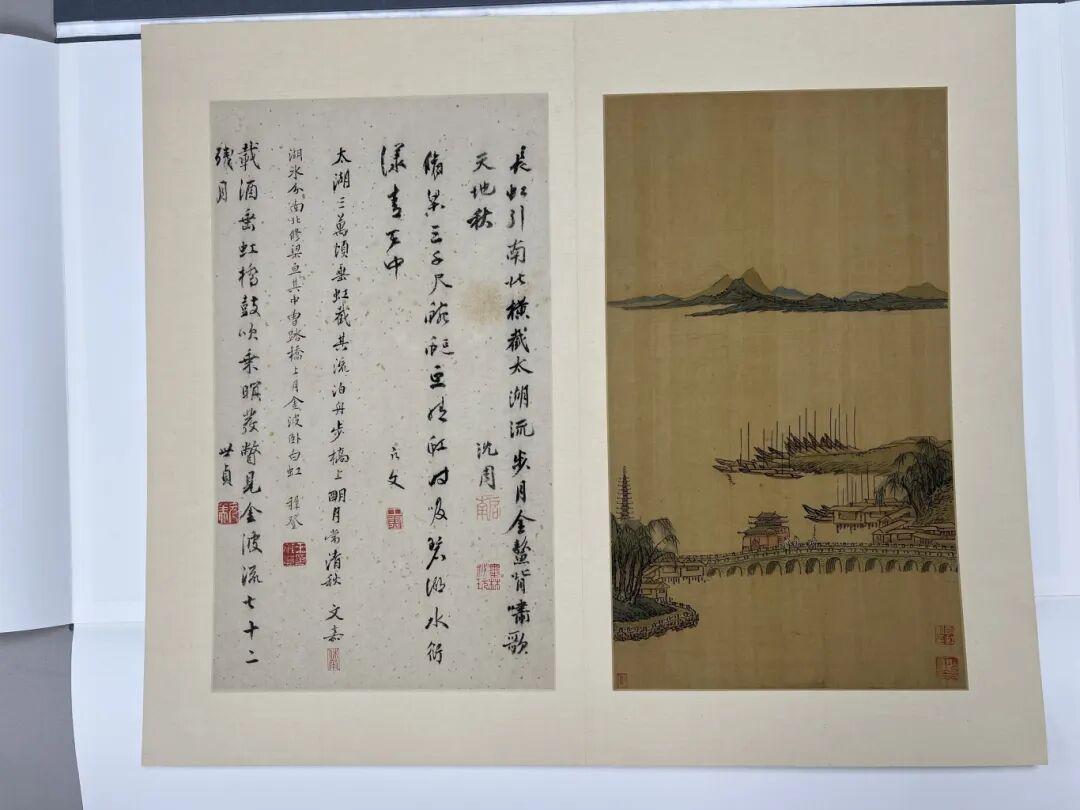 長虹引南北橫截太湖流步月金鰲背嘯歌
天地秋 沈周
啟南
脩梁三千尺蜿蜒亘晴虹時吸碧湖水衍
漾青天中
太湖三萬頃垂虹截其流泊舟步橋上明月當清秋 文嘉
湖水分南北修梁亘其中曾踏橋上月金波卧白虹 穉登
載酒垂虹橋鼓吹乘暝發瞥見金波流七十二
殘月 世貞